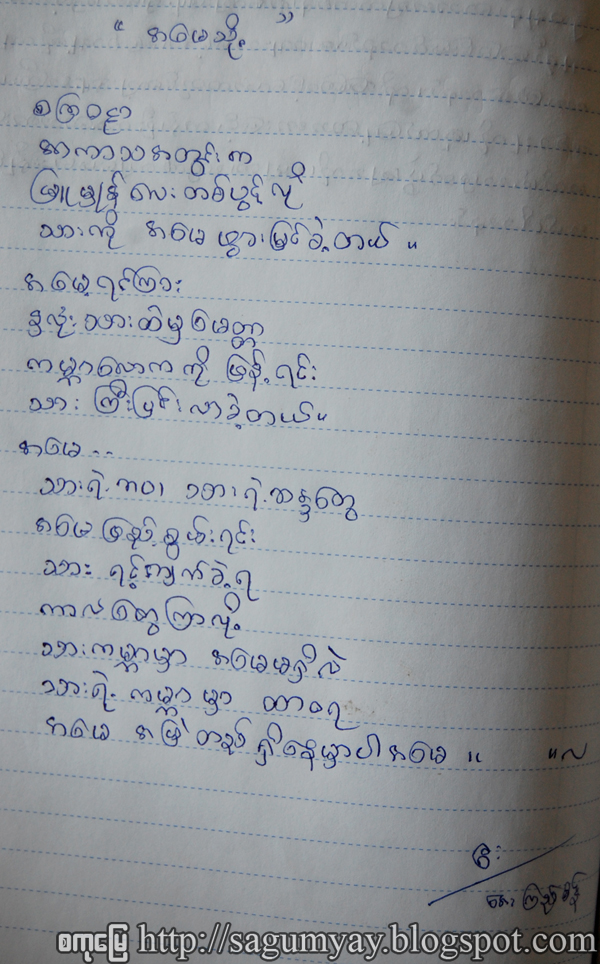 " အမေသို့ "
စကြာဝဠာ
အာကာသအတွင်းက
ဖြူမျှန်လေးတစ်ပွင့်လို
သားကို အမေ မွေးဖွားခဲ့တယ် ။
အမေ့ရင်ကြား
နှလုံးသားထဲမှ မေတ္တာ
ကမ္ဘာလောကကို ဖြန့်ရင်း
သား ကြီးပြင်းလာခဲ့တယ် ။
အမေ - -
သားရဲ့ဘဝ၊ သားရဲ့ဆန္ဒတွေ
အမေဖြည့်စွမ်းရင်း
သား ရင့်ကျက်ခဲ့ရ
ကာလတွေကြာလို့
သားကမ္ဘာမှာ အမေမရှိလဲ
သားရဲ့ ကမ္ဘာမှာ ထာဝရ
အမေ အမြဲတစေ ရှိနေမှာပါအမေ ။ ။လ
စကုမြေ http://sagumyay.blogspot.com